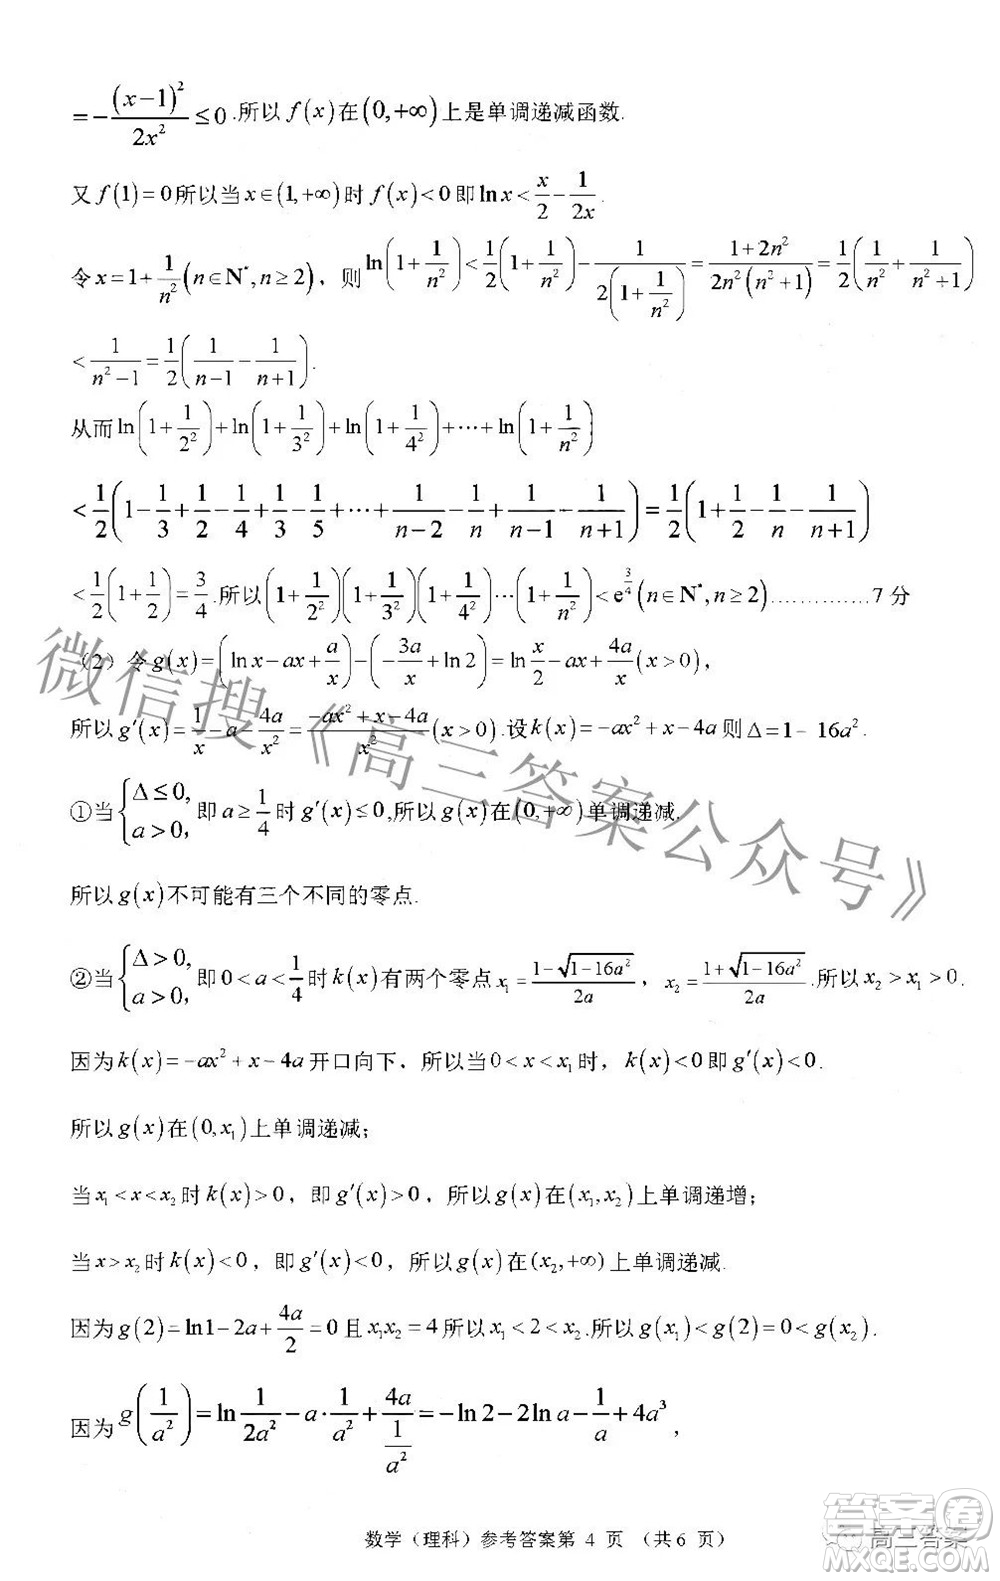 =-\frac{(x-1)^2}{2x^2}≤0.所以 f(x)在(0,+∞)上是单调递减函数.
又 f(1)=0所以当 x∈(1,+∞)时 f(x)<0即 ln x<\frac{x}{2}-\frac{1}{2x}.
令 x=1+\frac{1}{n^2}(n∈N^*,n≥2), 则 ln(1+\frac{1}{n^2})<\frac{1}{2}(1+\frac{1}{n^2})-\frac{1}{2(1+\frac{1}{n^2})}=\frac{1+2n^2}{2n^2(n^2+1)}=\frac{1}{2}(\frac{1}{n^2}+\frac{1}{n^2+1})
<\frac{1}{n^2-1}=\frac{1}{2}(\frac{1}{n-1}-\frac{1}{n+1}).
从而 ln(1+\frac{1}{2^2})+ln(1+\frac{1}{3^2})+ln(1+\frac{1}{4^2})+⋯+ln(1+\frac{1}{n^2})
<\frac{1}{2}(1-\frac{1}{3}+\frac{1}{2}-\frac{1}{4}+\frac{1}{3}-\frac{1}{5}+⋯+\frac{1}{n-2}-\frac{1}{n}+\frac{1}{n-1}-\frac{1}{n+1})=\frac{1}{2}(1+\frac{1}{2}-\frac{1}{n}-\frac{1}{n+1})
<\frac{1}{2}(1+\frac{1}{2})=\frac{3}{4}.所以(1+\frac{1}{2^2})(1+\frac{1}{3^2})(1+\frac{1}{4^2})⋯(1+\frac{1}{n^2})<e^{\frac{3}{4}}(n∈N^*,n≥2)..............7 分
(2)令 g(x)=(ln x-ax+\frac{a}{x})-(-\frac{3a}{x}+ln 2)=ln\frac{x}{2}-ax+\frac{4a}{x}(x>0),
所以 g′(x)=\frac{1}{x}-a-\frac{4a}{x^2}=\frac{-ax^2+x-4a}{x^2}(x>0).设 k(x)=-ax^2+x-4a 则 Δ=1-16a^2.
①当{Δ≤0, a>0, 即 a≥\frac{1}{4}时 g′(x)≤0,所以 g(x)在(0,+∞)单调递减.
所以 g(x)不可能有三个不同的零点.
②当{Δ>0, a>0, 即 0<a<\frac{1}{4}时 k(x)有两个零点 x_1=\frac{1-\sqrt{1-16a^2}}{2a}, x_2=\frac{1+\sqrt{1-16a^2}}{2a}.所以 x_2>x_1>0.
因为 k(x)=-ax^2+x-4a 开口向下, 所以当 0<x<x_1 时, k(x)<0 即 g′(x)<0.
所以 g(x)在(0,x_1)上单调递减;
当 x_1<x<x_2 时 k(x)>0, 即 g′(x)>0, 所以 g(x)在(x_1,x_2)上单调递增;
当 x>x_2 时 k(x)<0, 即 g′(x)<0, 所以 g(x)在(x_2,+∞)上单调递减.
因为 g(2)=ln1-2a+\frac{4a}{2}=0 且 x_1x_2=4 所以 x_1<2<x_2.所以 g(x_1)<g(2)=0<g(x_2).
因为 g(\frac{1}{a^2})=ln\frac{1}{2a^2}-a·\frac{1}{a^2}+\frac{4a}{\frac{1}{a^2}}=-ln2-2ln a-\frac{1}{a}+4a^3,
微信搜《高三答案公众号》
数学(理科)参考答案第 4 页 (共 6 页)
高三答案
答案圈
MXQE.COM